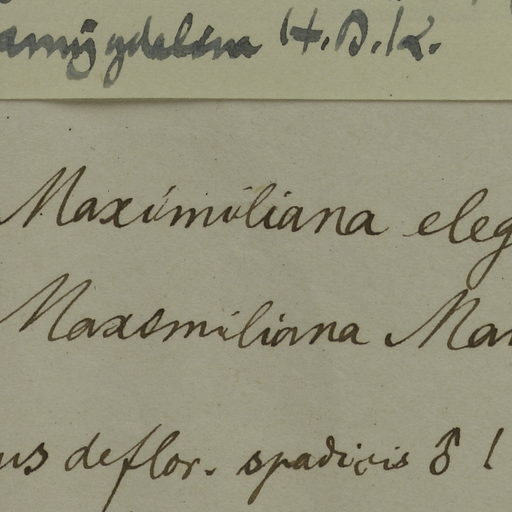 amygdalina H.B.K.
Maximiliana eleg
Maxsmiliana Mar
us deflor. spadicis ♂ !